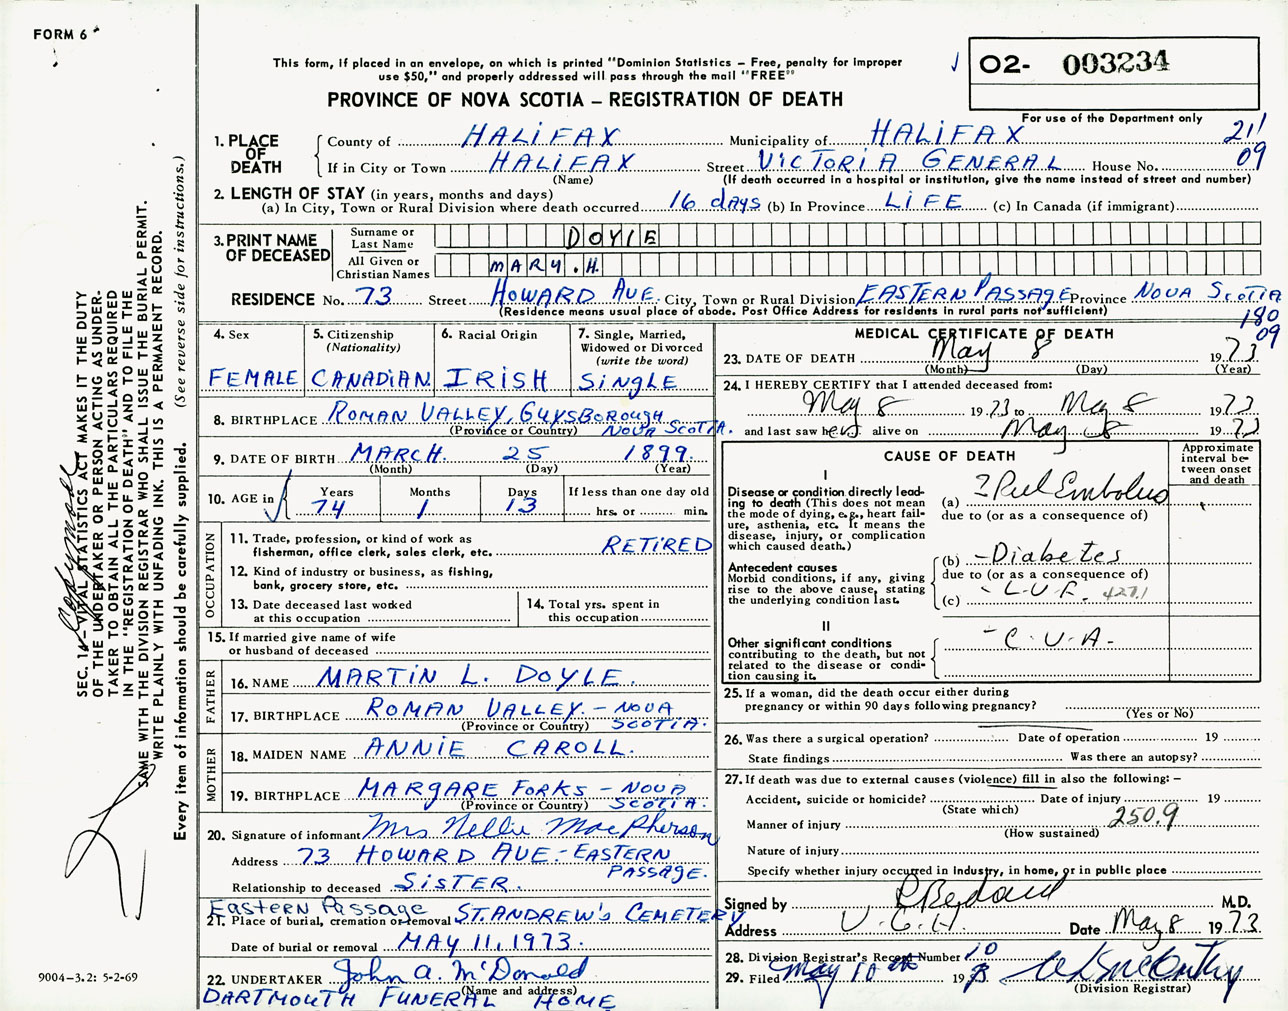 FORM 6
This form, if placed in an envelope, on which is printed "Dominion Statistics – Free, penalty for improper
use $50," and properly addressed will pass through the mail "FREE"
PROVINCE OF NOVA SCOTIA – REGISTRATION OF DEATH
02- 003234
For use of the Department only
211
09
1. PLACE OF DEATH
County of HALIFAX Municipality of HALIFAX
If in City or Town HALIFAX Street VICTORIA GENERAL House No.
(Name) (If death occurred in a hospital or institution, give the name instead of street and number)
2. LENGTH OF STAY (in years, months and days)
(a) In City, Town or Rural Division where death occurred 16 days (b) In Province LIFE (c) In Canada (if immigrant)
3. PRINT NAME OF DECEASED
Surname or Last Name DOYLE
All Given or Christian Names MARY. H.
RESIDENCE No. 73 Street HOWARD AVE. City, Town or Rural Division EASTERN PASSAGE Province NOVA SCOTIA
(Residence means usual place of abode. Post Office Address for residents in rural parts not sufficient)
180
09
4. Sex FEMALE
5. Citizenship (Nationality) CANADIAN
6. Racial Origin IRISH
7. Single, Married, Widowed or Divorced (write the word) SINGLE
8. BIRTHPLACE ROMAN VALLEY, GUYSBOROUGH
(Province or Country) NOVA SCOTIA.
9. DATE OF BIRTH MARCH. 25 1899
(Month) (Day) (Year)
10. AGE in
Years Months Days If less than one day old
74 1 13 hrs. or min.
OCCUPATION
11. Trade, profession, or kind of work as
fisherman, office clerk, sales clerk, etc. RETIRED
12. Kind of industry or business, as fishing,
bank, grocery store, etc.
13. Date deceased last worked
at this occupation
14. Total yrs. spent in
this occupation
15. If married give name of wife
or husband of deceased
FATHER
16. NAME MARTIN L. DOYLE.
17. BIRTHPLACE ROMAN VALLEY. – NOVA
(Province or Country) SCOTIA.
MOTHER
18. MAIDEN NAME ANNIE CAROLL.
19. BIRTHPLACE MARGARE FORKS – NOVA
(Province or Country) SCOTIA.
20. Signature of informant Mrs Nellie MacPherson
Address 73 HOWARD AVE. – EASTERN
PASSAGE.
Relationship to deceased SISTER.
Eastern Passage
21. Place of burial, cremation or removal ST. ANDREW'S CEMETERY
Date of burial or removal MAY 11, 1973.
22. UNDERTAKER John A. McDonald
(Name and address)
DARTMOUTH FUNERAL HOME
MEDICAL CERTIFICATE OF DEATH
23. DATE OF DEATH May 8 1973
(Month) (Day) (Year)
24. I HEREBY CERTIFY that I attended deceased from:
May 8 1973 to May 8 1973
and last saw her alive on May 8 1973
CAUSE OF DEATH
Approximate interval between onset and death
I
Disease or condition directly leading to death (This does not
mean the mode of dying, e.g., heart failure, asthenia, etc. It means the
disease, injury, or complication
which caused death.)
(a) ? Pul Embolus
due to (or as a consequence of)
Antecedent causes
Morbid conditions, if any, giving
rise to the above cause, stating
the underlying condition last.
(b) – Diabetes
due to (or as a consequence of)
(c) – L.V.F. 427.1
II
Other significant conditions
contributing to the death, but not
related to the disease or condition
causing it.
– C.V.A –
25. If a woman, did the death occur either during
pregnancy or within 90 days following pregnancy?
(Yes or No)
26. Was there a surgical operation? Date of operation 19
State findings Was there an autopsy?
27. If death was due to external causes (violence) fill in also the following: –
Accident, suicide or homicide? Date of injury 19
(State which)
Manner of injury 250.9
(How sustained)
Nature of injury
Specify whether injury occurred in Industry, in home, or in public place
Signed by M.D.
Address V.G.H. Date May 8 1973.
28. Division Registrar's Record Number 10
29. Filed May 10th 1973
(Division Registrar)
SEC. 16 – VITAL STATISTICS ACT MAKES IT THE DUTY
OF THE UNDERTAKER OR PERSON ACTING AS UNDER-
TAKER TO OBTAIN ALL THE PARTICULARS REQUIRED
IN THE "REGISTRATION OF DEATH" AND TO FILE THE
SAME WITH THE DIVISION REGISTRAR WHO SHALL ISSUE THE BURIAL PERMIT.
WRITE PLAINLY WITH UNFADING INK. THIS IS A PERMANENT RECORD.
Every item of information should be carefully supplied. (See reverse side for instructions.)
9004–3.2: 5-2-69